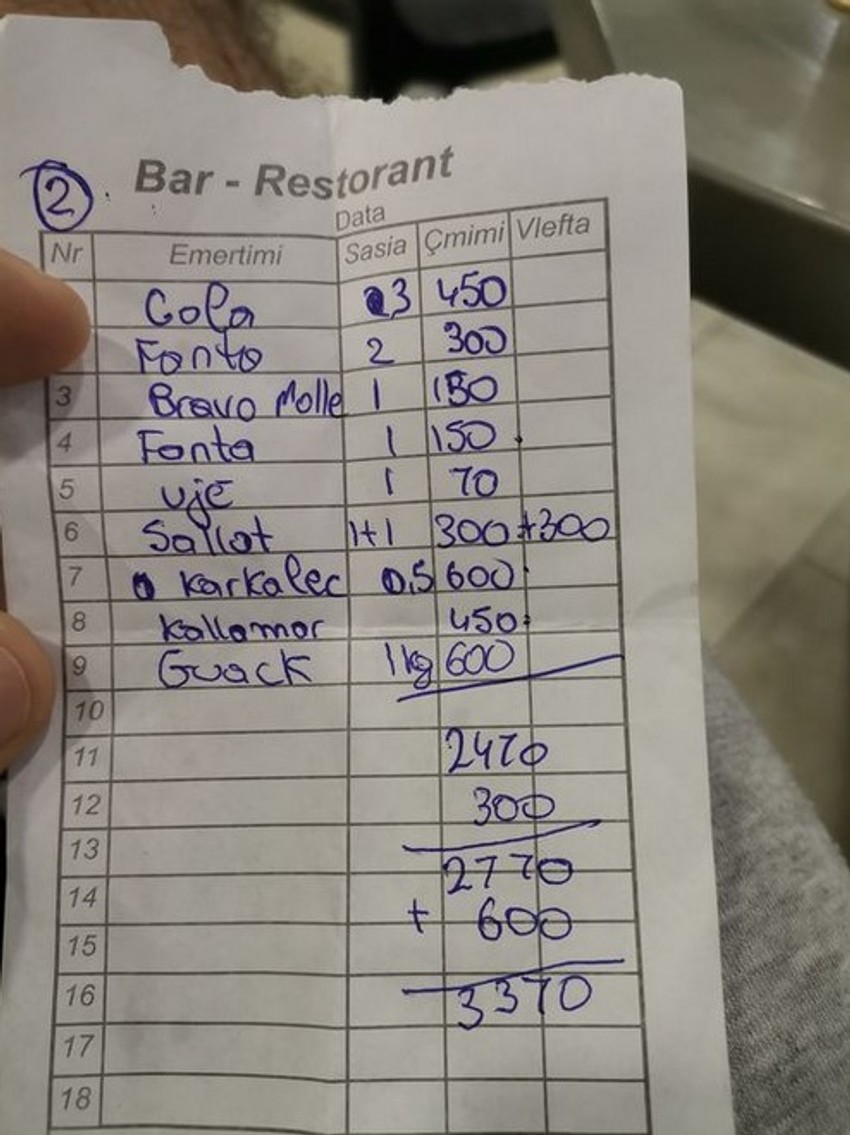 2
Bar - Restorant
Data
Nr Emertimi Sasia Çmimi Vlefta
Cola 3 450
Fanta 2 300
3 Bravo Molle 1 150
4 Fanta 1 150
5 Uje 1 70
6 Sallat 1+1 300+300
7 Karkalec 0.5 600
8 Kallamar 450
9 Guack 1kg 600
10
11 2470
12 300
13 2770
14 + 600
15
16 3370
17
18